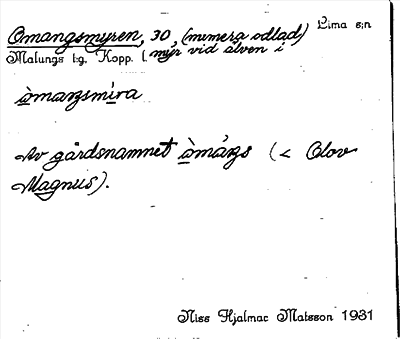 Omangsmyren, 30, (numera odlad) Lima s:n
Malungs t:g. Kopp. l. myr vid älven i
òmaŋsmira
Av gårdsnamnet òmáŋs (< Olov
Magnus).
Niss Hjalmar Matsson 1931